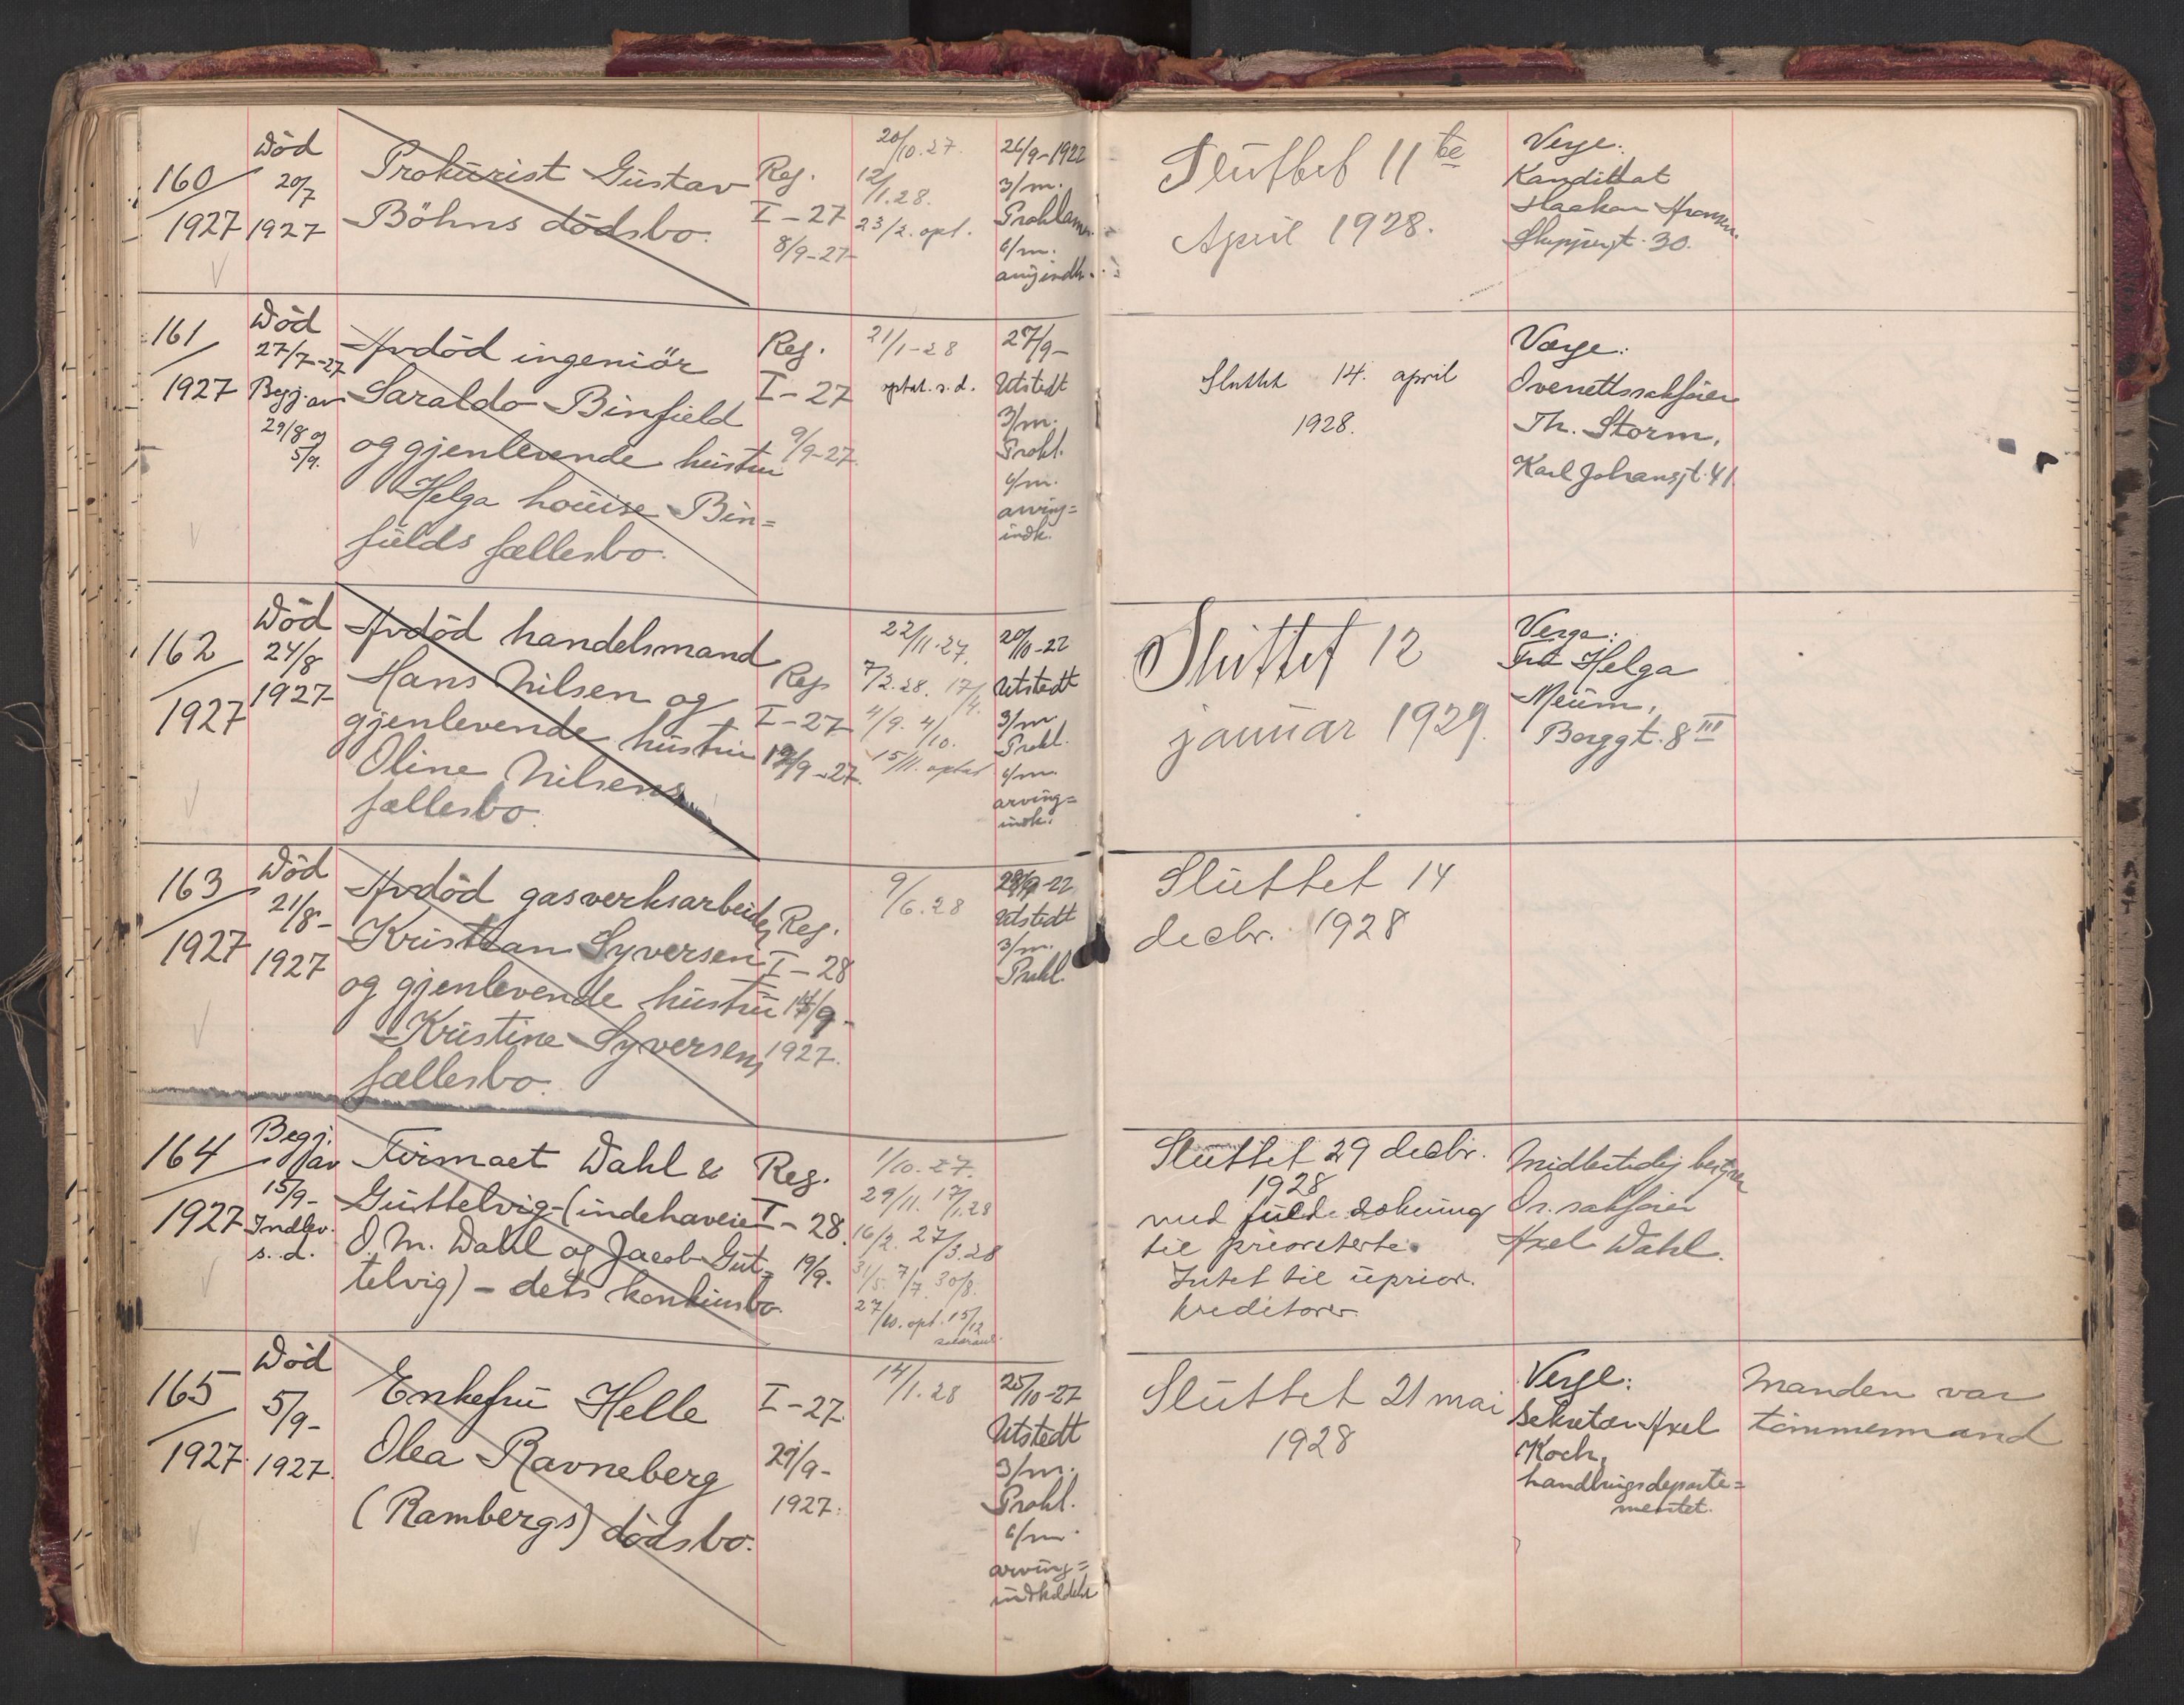 160
1927
Död
20/7
1927
Prokürist Güstav
Böhns dödsbo.
Reg.
I-27
8/9-27
20/10.27.
12/1.28.
23/2. opt.
26/9-1927
3/m.
Proklama
6/m.
Slüttet 11te
April 1928.
Verge:
Kandidat
Haakon
30.
161
1927
Död
27/7-27
Begj. av
29/8 og
5/9.
Avdöd ingeniör
Saraldo Binfield
og gjenlevende hüstrü
Helga Loüise Bin=
fields fællesbo.
Reg.
I-27
9/9-27.
21/1-28
optat. s.d.
27/9-
Utstedt
3/m.
Prokl.
6/m.
arving=
indk.
Sluttet 14. april
1928.
Verge:
Overrettssakförer
Th. Storm,
Karl Johansgt. 41
162
1927
Död
24/8
1927
Avdöd handelsmand
Hans Nilsen og
gjenlevende hüstrü
Oline Nilsens
fællesbo.
Reg
I-27
/9-27.
22/11.27.
7/2.28. 17/4.
4/9. 4/10.
15/11. optat
Utstedt
3/m.
Prokl.
6/m.
arving=
indk.
Slüttet 12
janüar 1929.
Verge:
Frk Helga
Meüm,
Borggt. 8 III
163
1927
Död
21/8-
1927
Avdöd gasverksarbeider
Kristian Syversen
og gjenlevende hüstrü
Kristine Syversens
fællesbo.
Reg.
I-28
14/9-
1927.
9/6.28
Utstedt
3/m.
Prokl.
Slüttet 14
decbr. 1928
164
1927
Begj.
av
15/9-
Indlev.
s.d.
Firmaet Dahl &
Güttelvig (indehavere
O.M. Dahl og Jacob Güt=
telvig) - dets konkürsbo.
Reg.
I-28.
19/9.
1/10.27.
29/11. 17/1.28
16/2. 27/3.28
31/5. 7/7. 30/8.
27/10. opt. 15/12
Slüttet 29 decbr.
1928
med füld dækning
til prioriterte.
Intet til üprior.
kreditorer.
Midlertidig bestyrer
Or. sakförer
Axel Dahl.
165
1927.
Död
5/9-
1927.
Enkefrü Helle
Olea Ravneberg
(Rambergs) dödsbo.
I-27.
21/9-
1927.
14/1.28
25/10-27
Utstedt
3/m.
Prokl.
6/m.
arving=
indkaldelse
Slüttet 21 mai
1928
Verge:
Sekretær Axel
Koch,
handlingsdeparte=
mentet.
Manden var
tömmermand